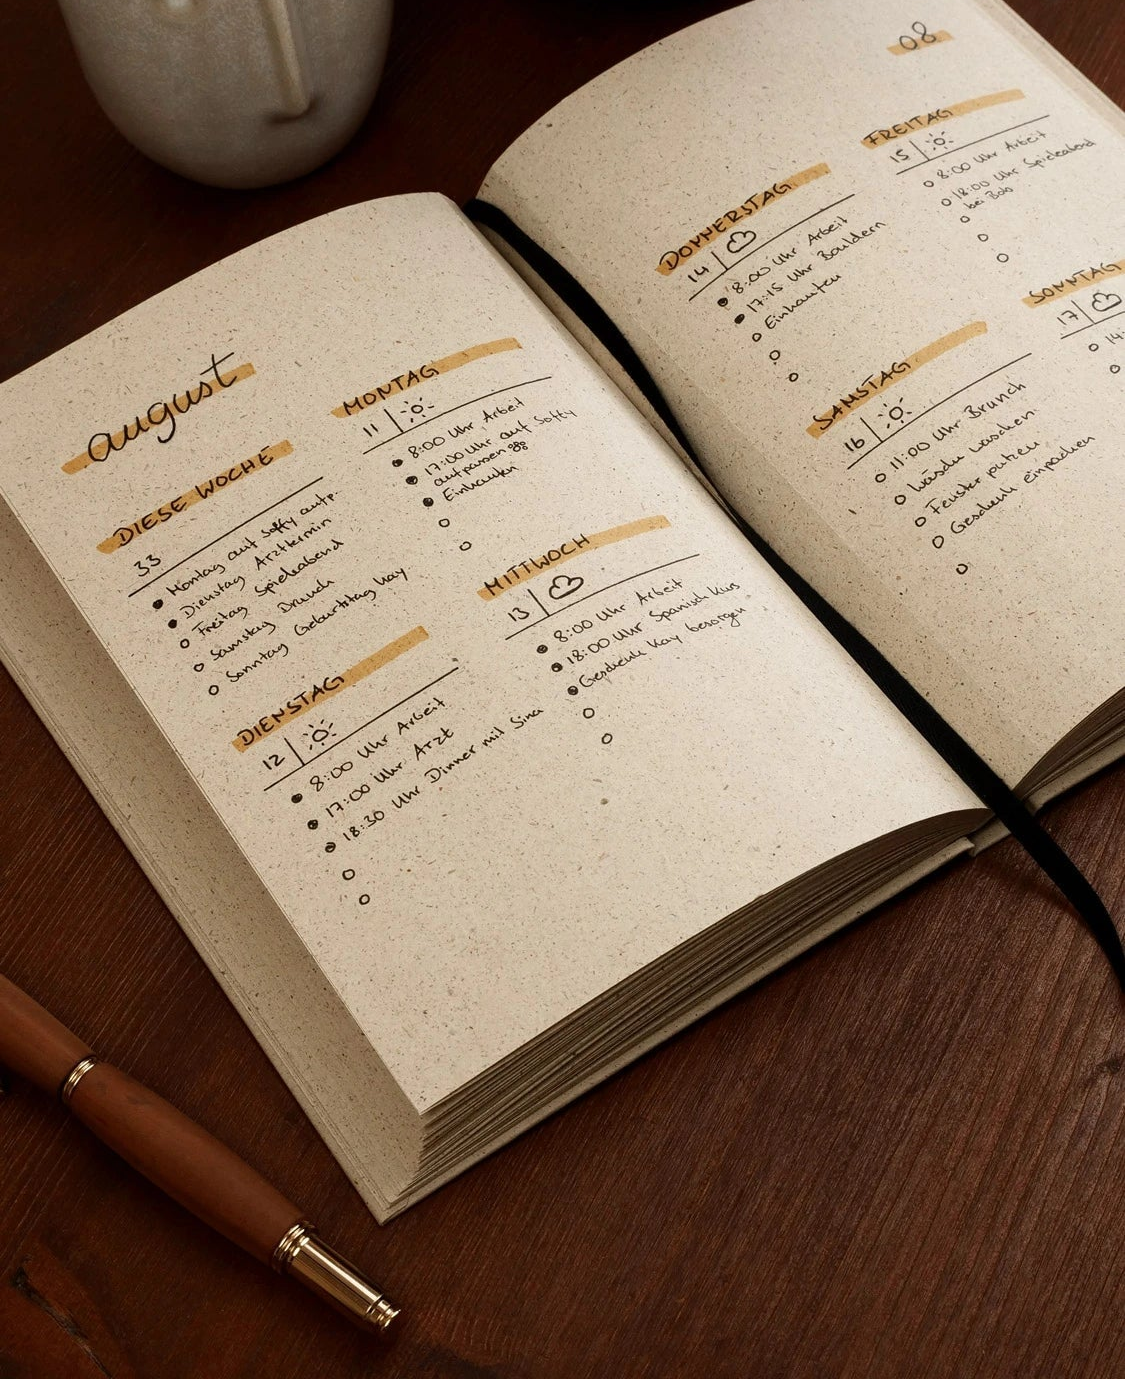 august
DIESE WOCHE
33
Montag auf Softy aufp.
Dienstag Arzttermin
Freitag Spieleabend
Samstag Brunch
Sonntag Geburtstag Kay
DIENSTAG
12
8:00 Uhr Arbeit
17:00 Uhr Arzt
18:30 Uhr Dinner mit Sina
MONTAG
11
8:00 Uhr Arbeit
17:00 Uhr auf Softy
aufpassen
Einkaufen
MITTWOCH
13
8:00 Uhr Arbeit
18:00 Uhr Spanisch Kurs
Geschenk Kay besorgen
08
DONNERSTAG
14
8:00 Uhr Arbeit
17:15 Uhr Bouldern
Einkaufen
SAMSTAG
16
11:00 Uhr Brunch
Wäsche waschen
Fenster putzen
Geschenk einpacken
FREITAG
15
8:00 Uhr Arbeit
18:00 Uhr Spieleabend
bei Bob
SONNTAG
17
14: